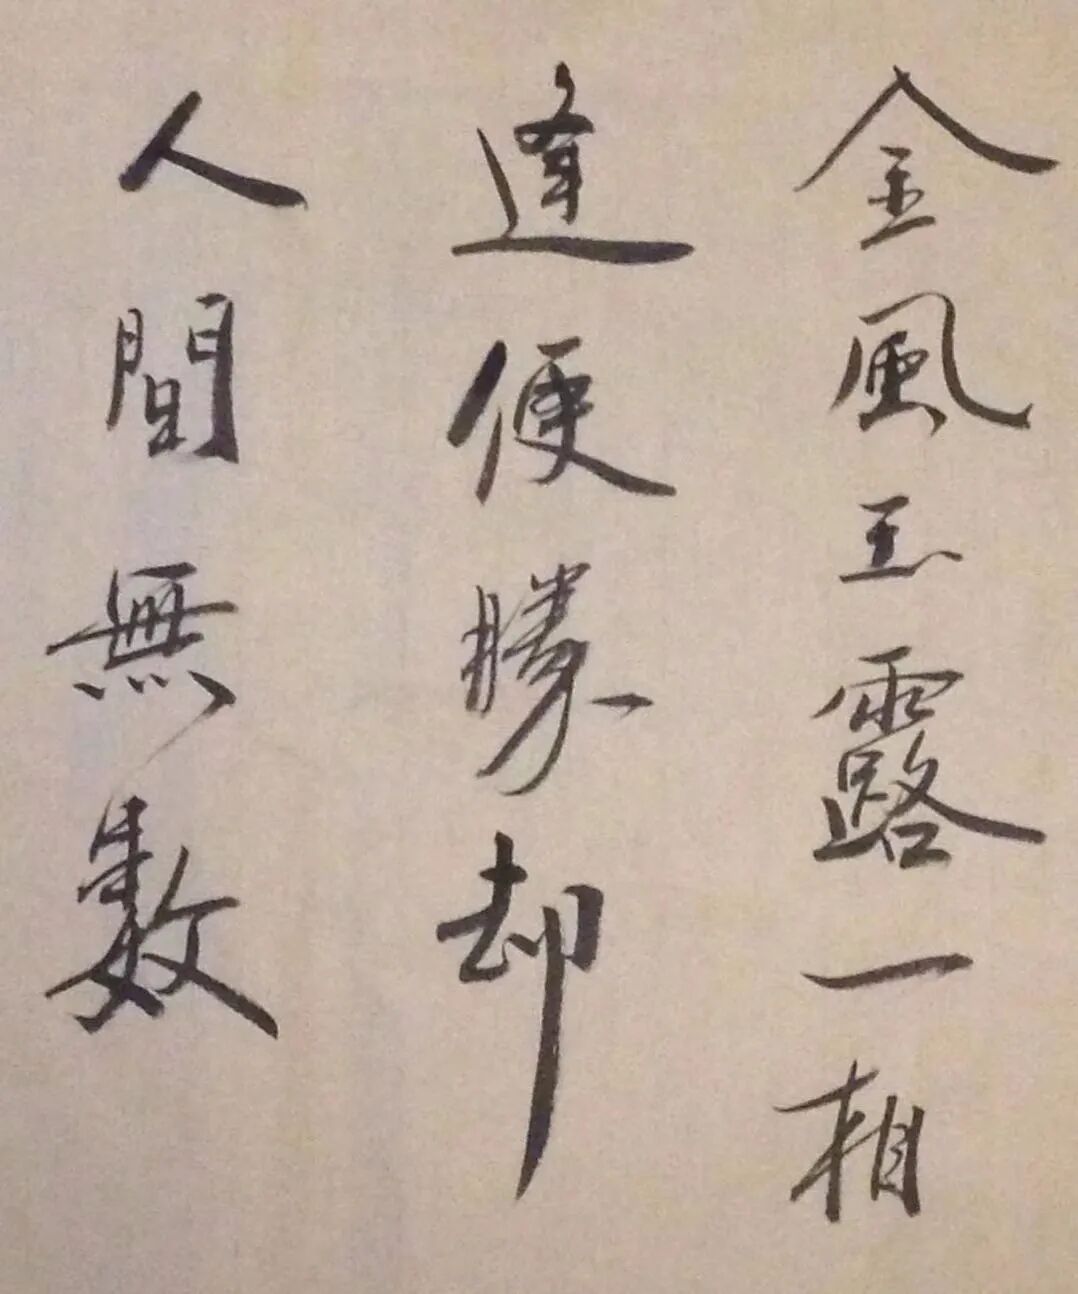 金風玉露一相
逢便勝却
人間無數